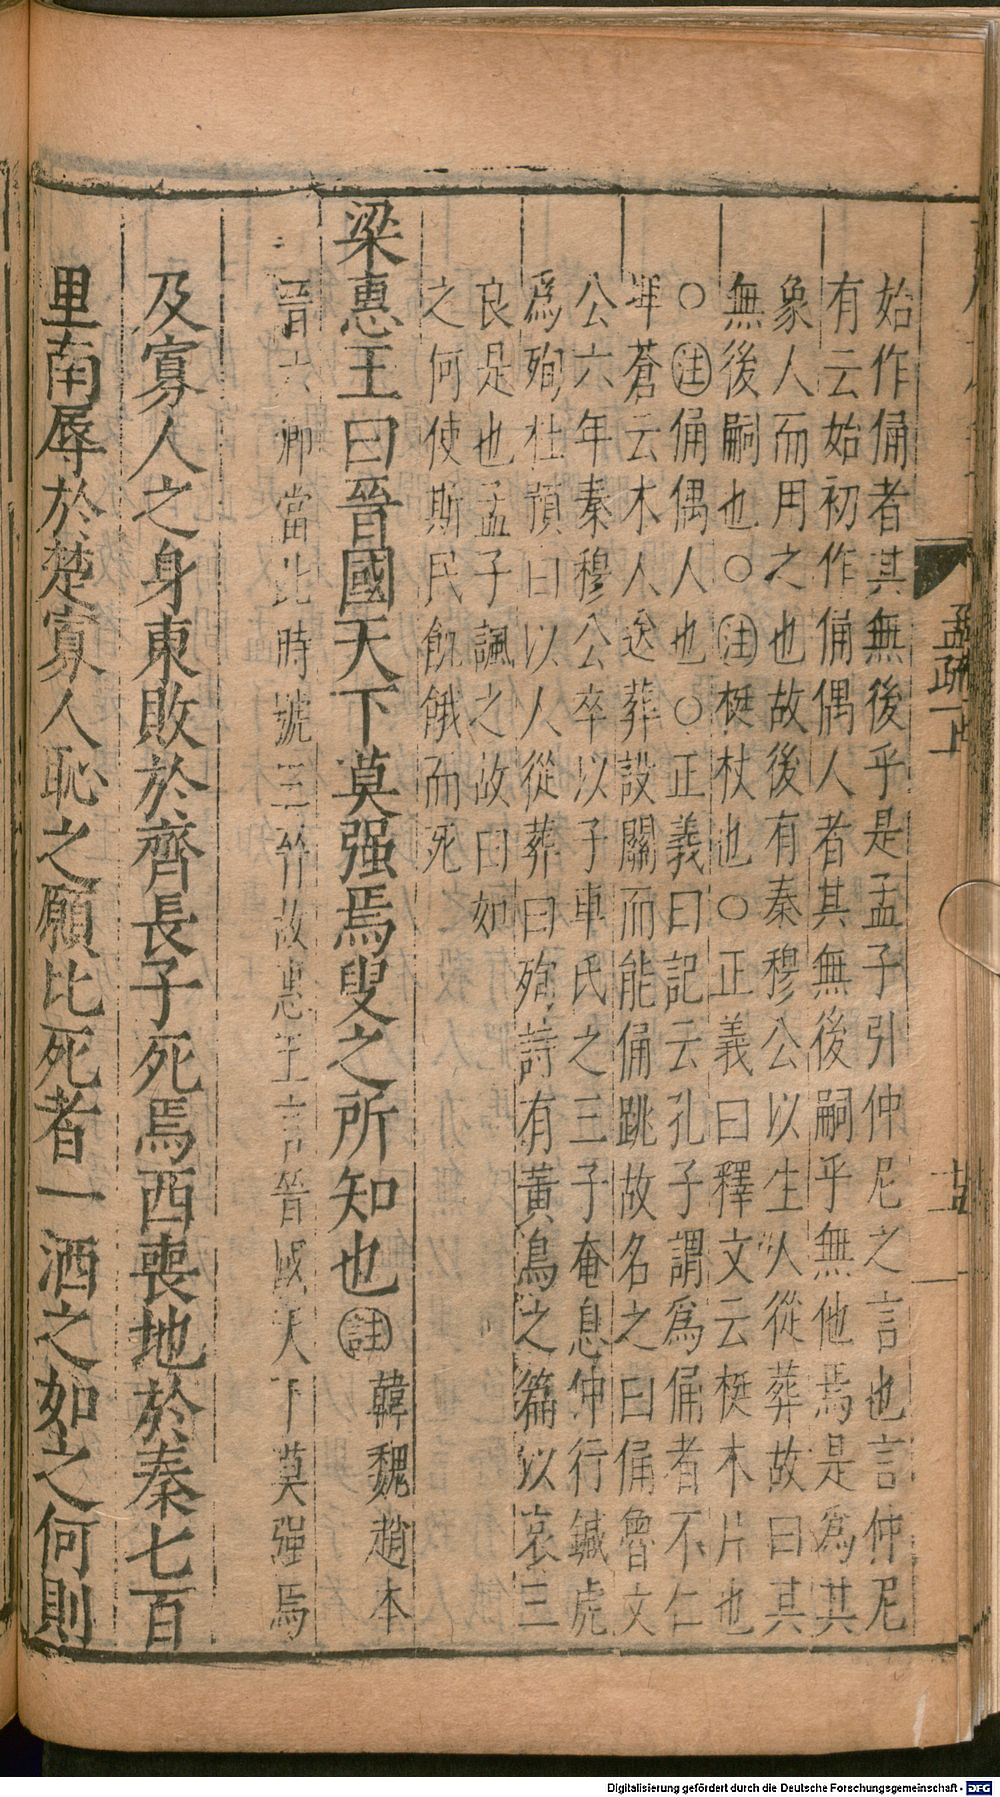 始作俑者其無後乎是孟子引仲尼之言也言仲尼
有云始初作俑偶人者其無後嗣乎無他焉是為其
象人而用之也故後有秦穆公以生人從葬故曰其
無後嗣也○注梃杖也○正義曰釋文云梃木片也
○注俑偶人也○正義曰記云孔子謂爲俑者不仁
埤蒼云木人送葬設關而能俑跳故名之曰俑魯文
公六年秦穆公卒以子車氏之三子奄息仲行鍼虎
爲殉杜預曰以人從葬曰殉詩有黃鳥之篇以哀三
良是也孟子諷之故曰如
之何使斯民飢餓而死
梁惠王曰晉國天下莫强焉叟之所知也註韓魏趙本
晉六卿當此時號三晉故惠王言晉國天下莫强焉
及寡人之身東敗於齊長子死焉西喪地於秦七百
里南辱於楚寡人恥之願比死者一洒之如之何則
孟疏一上
Digitalisierung gefördert durch die Deutsche Forschungsgemeinschaft - DFG